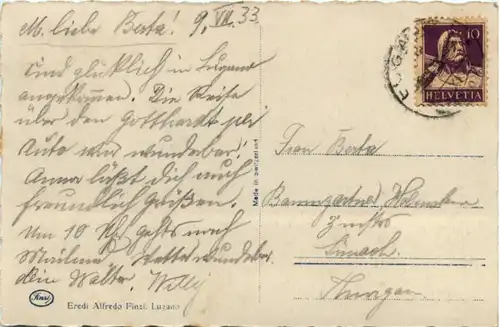 M. liebe Berta! 9. VII. 33
Sind glücklich in Lugano
angekommen. Die Reise
über den Gotthardt per
Auto war wunderbar!
Anna läßt Dich auch
freundlich Grüßen.
Um 10 Uhr gehts nach
Mailand. Wetter wunderbar.
Dein Walter. Willy
Finzi
Eredi Alfredo Finzi. Lugano
Made in Switzerland
LUGANO
10
HELVETIA
Frau Berta
Baumgartner
Amach
Thurgau